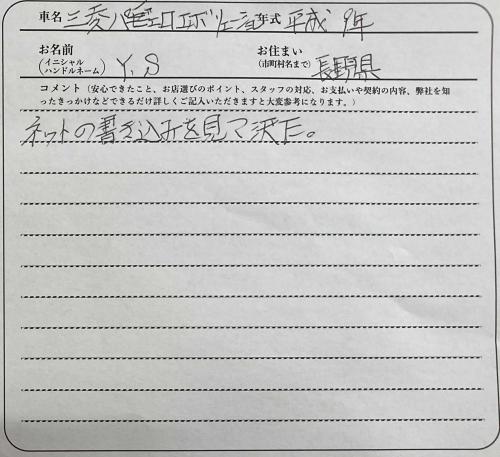 車名 三菱パジェロエボリューション 年式 平成 9年
お名前 (イニシャル ハンドルネーム) Y.S お住まい (市町村名まで) 長野県
コメント（安心できたこと、お店選びのポイント、スタッフの対応、お支払いや契約の内容、弊社を知
ったきっかけなどできるだけ詳しくご記入いただきますと大変参考になります。）
ネットの書き込みを見て決た。